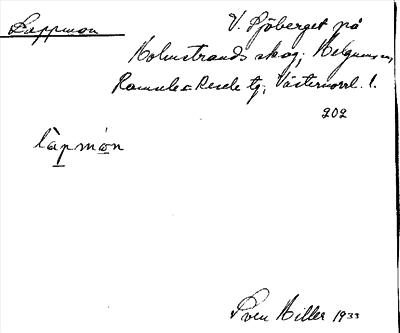 Lappmon
V. Sjöberget på
Holmstrands skog; Helgumsn,
Ramsele o Resele tg; Västernorrl. l.
202
làpmòn
Sven Hiller 1933